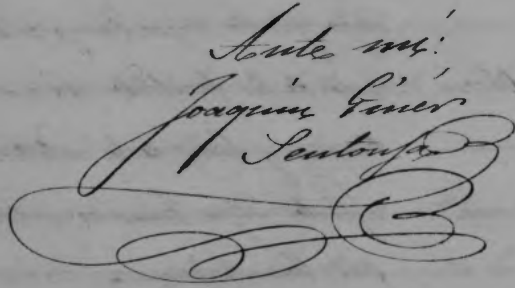 Ante mí:
Joaquín Giner
Sentonja